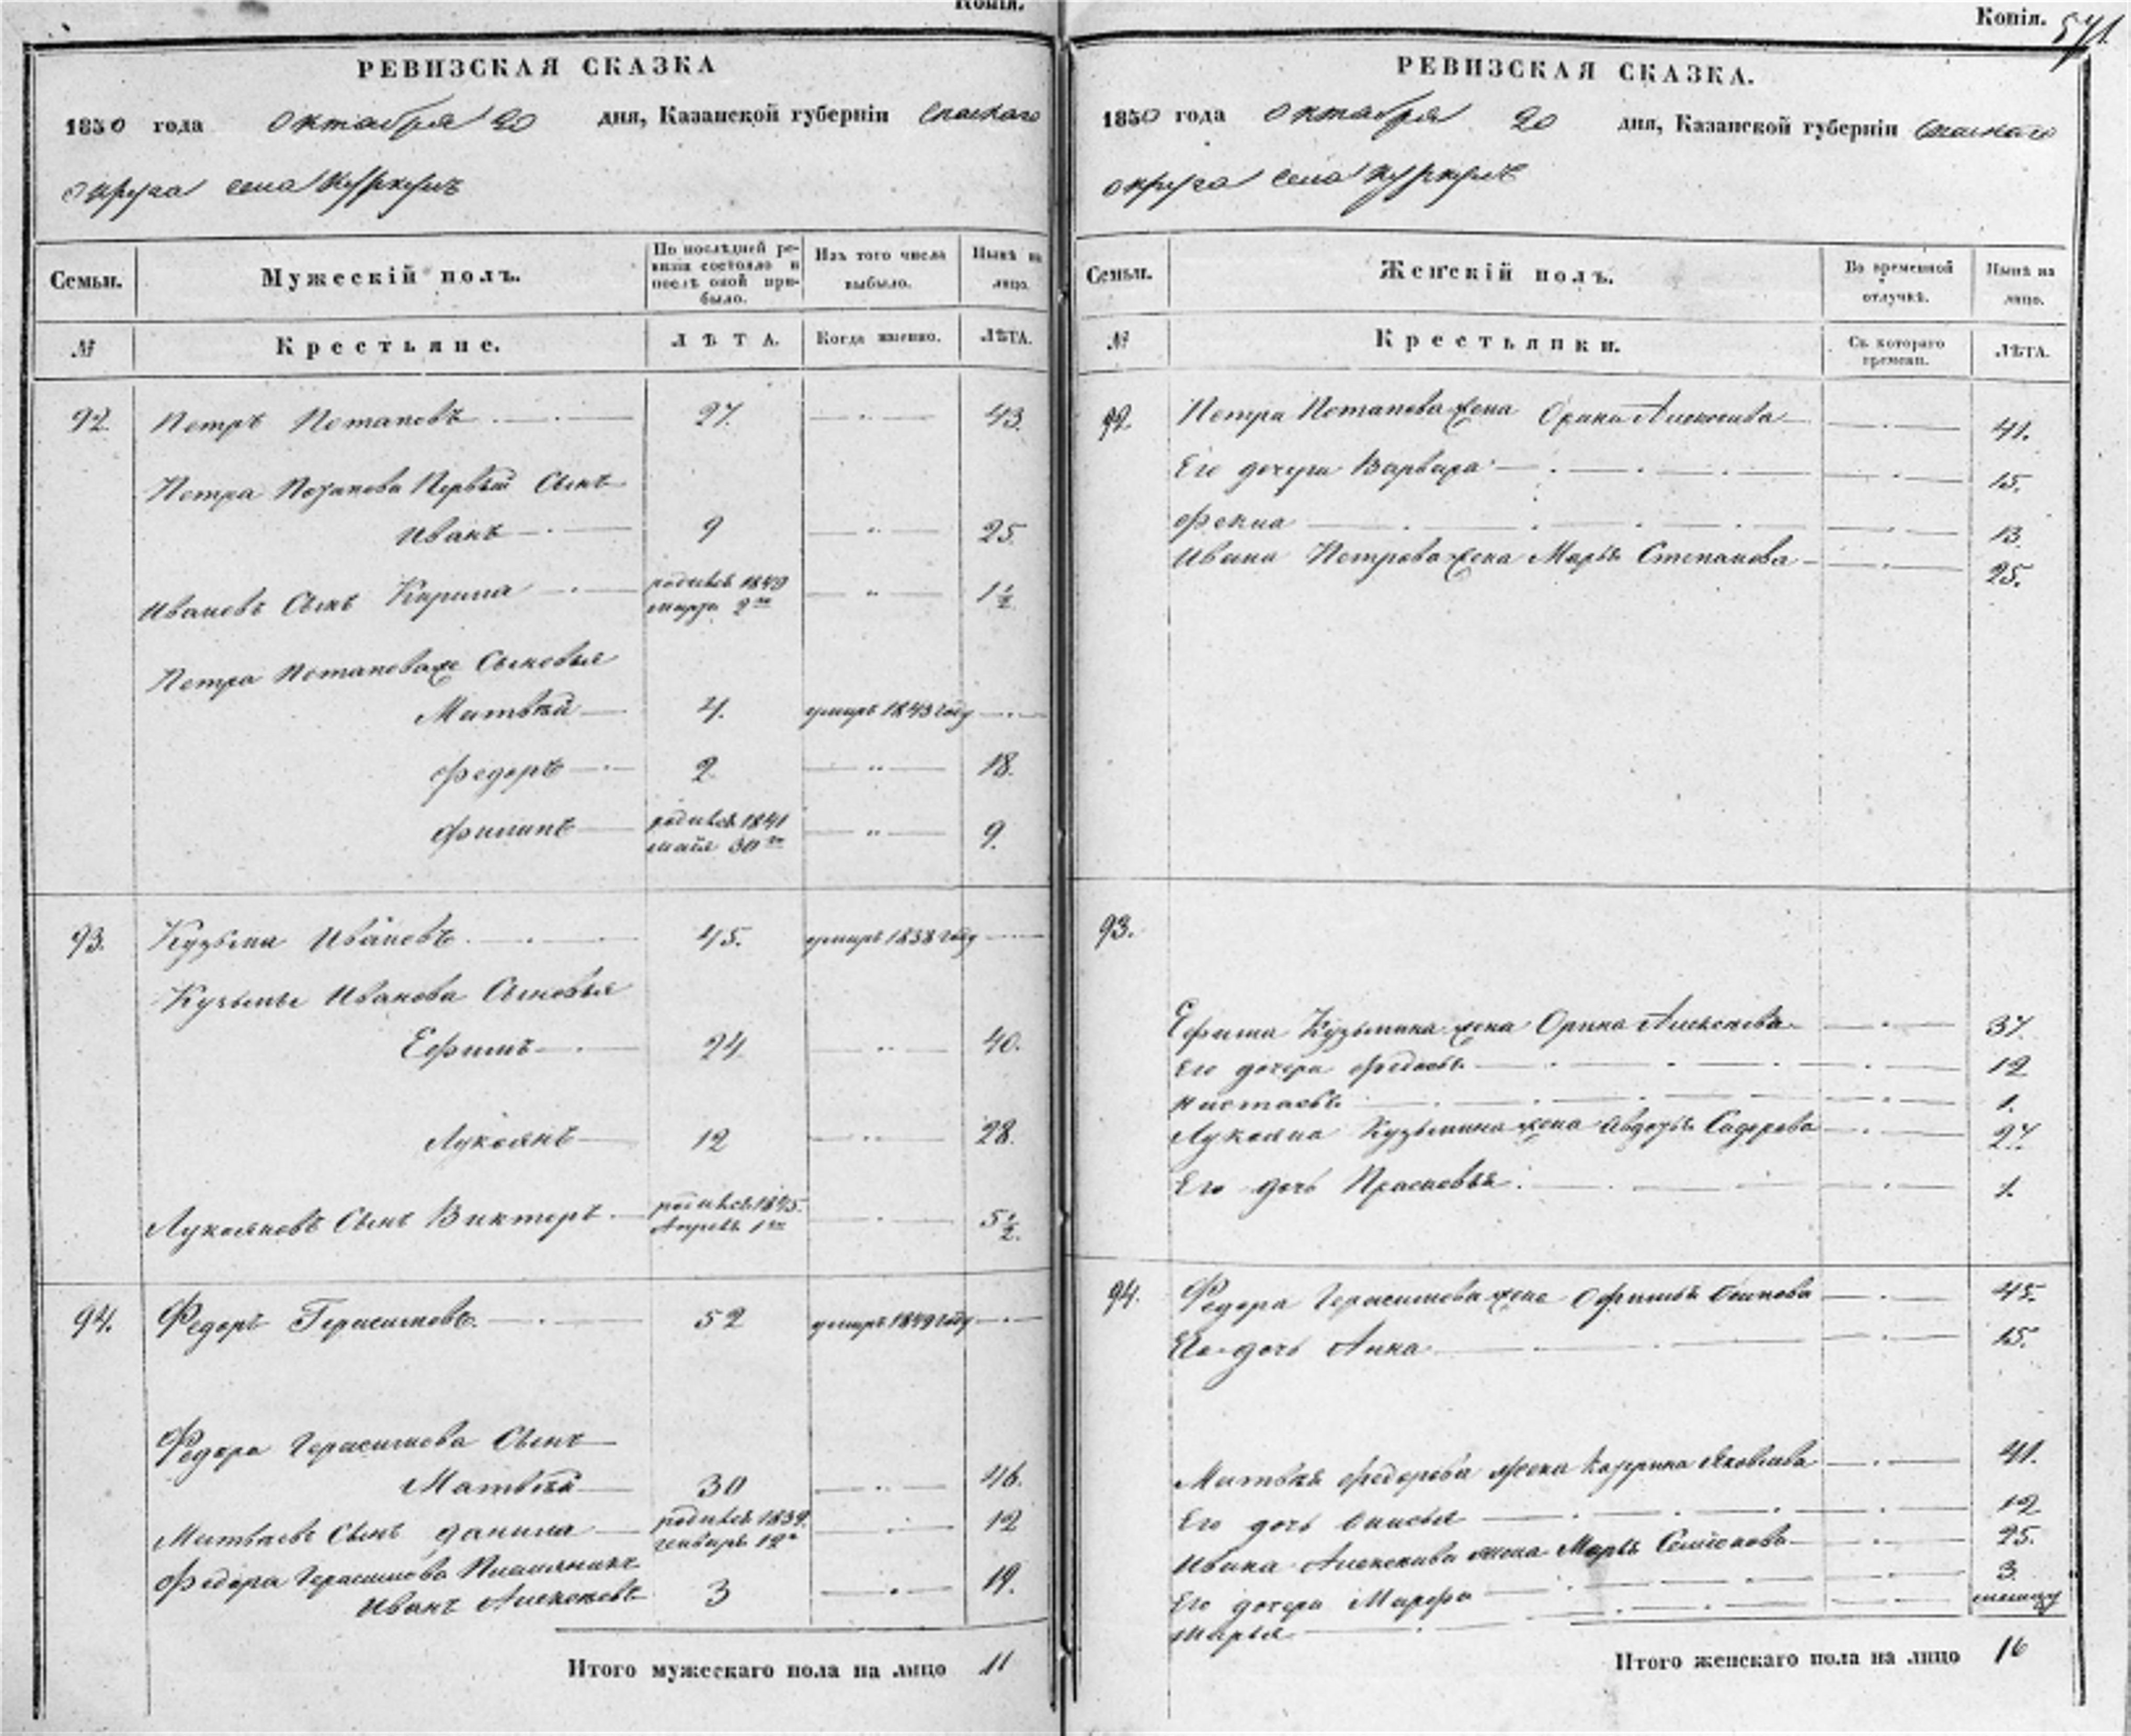 Копія.
РЕВИЗСКАЯ СКАЗКА
1850 года октября 20 дня, Казанской губерніи Спаскаго
округа села Куркуль
Семьи.
Мужескій полъ.
По послѣдней ревизіи состояло и послѣ оной прибыло.
Изъ того числа выбыло.
Нынѣ на лицо.
№
Крестьяне.
ЛѢТА.
Когда именно.
ЛѢТА.
92 Петръ Потаповъ 27. 43.
Петра Потапова Первый Сынъ
Иванъ 9 25.
Ивановъ Сынъ Кирила родился 1849 марта 2го 1½
Петра Потапова же Сыновья
Матвей 4. умеръ 1843 году
Федоръ 2 18.
Филипъ родился 1841 мая 30го 9.
93. Кузьма Ивановъ 45. умеръ 1838 году
Кузьмы Иванова Сыновья
Ефимъ 24 40.
Лукоянъ 12 28.
Лукояновъ Сынъ Викторъ родился 1845. Апреля 1го 5½.
94. Федоръ Герасимовъ. 52 умеръ 1849 году
Федора Герасимова Сынъ
Матвей 30 46.
Матвеевъ Сынъ Данила родился 1839. генваря 12 12
Федора Герасимова Племянникъ
Иванъ Алексеевъ 3 19.
Итого мужескаго пола на лицо 11
Копія. 571.
РЕВИЗСКАЯ СКАЗКА.
1850 года октября 20 дня, Казанской губерніи Спаскаго
округа села Куркуль
Семьи.
Женскій полъ.
Во временной отлучкѣ.
Нынѣ на лицо.
№
Крестьянки.
Съ котораго времени.
ЛѢТА.
92. Петра Потапова жена Орина Алексеева 41.
Его дочери Варвара 15.
Фекла 13.
Ивана Петрова жена Марья Степанова 25.
93.
Ефима Кузьмина жена Орина Алексеева 37.
Его дочери Федосья 12
Настасья 1.
Лукояна Кузьмина жена Авдотья Сидорова 27.
Его дочь Прасковья. 1.
94. Федора Герасимова жена Офимья Осипова 45.
Его дочь Анна 15.
Матвея Федорова жена Катрина Яковлева 41.
Его дочь Анисья 12
Ивана Алексеева жена Марья Семенова 25.
Его дочери Марфа 3
Марья
Итого женскаго пола на лицо 16